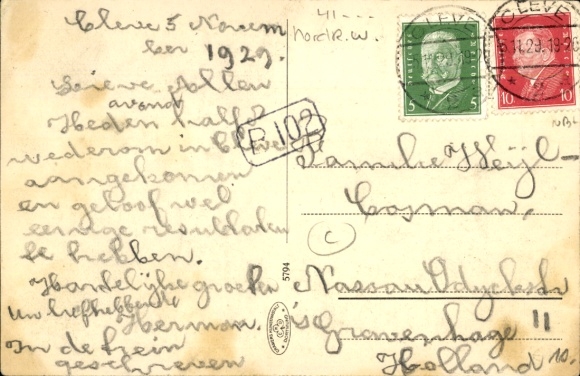 Cleve 5 Novem
ber 1929.
Lieve Allen
avond
Heden half 6
wederom in Cleve
aangekomen
en geloof wel
eenige resultaten
te hebben.
Hartelijke groeten
Uw liefhebbende
Herman.
In de trein
geschreven
41---
Nordr.W.
P. 102
CLEVE
5.11.29.19-20
CLEVE
5
5
10
10
5794
C
Familie Weijl-
Cosman.
Nassau Odijckstr
11
's Gravenhage
Holland
10.